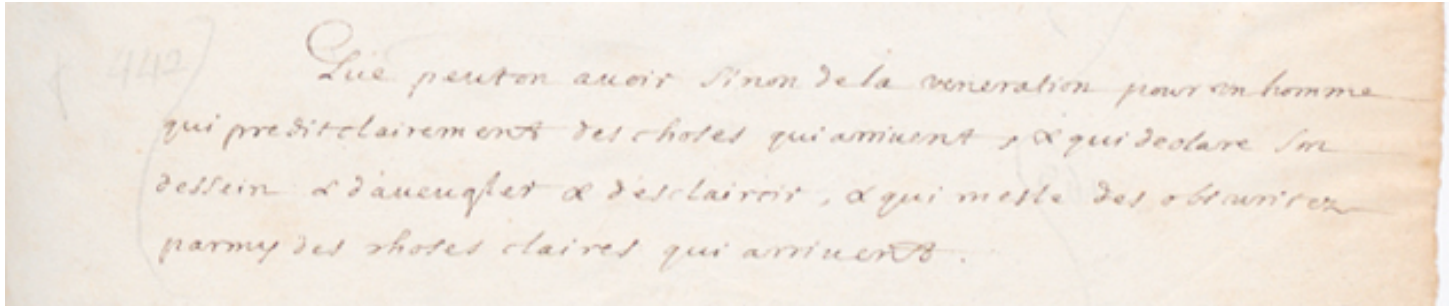 442
Que peut on avoir sinon de la veneration pour un homme
qui predit clairement des choses qui arrivent, & qui declare son
dessein & d'aveugler & d'esclaircir, & qui mesle des obscuritez
parmy des choses claires qui arrivent.